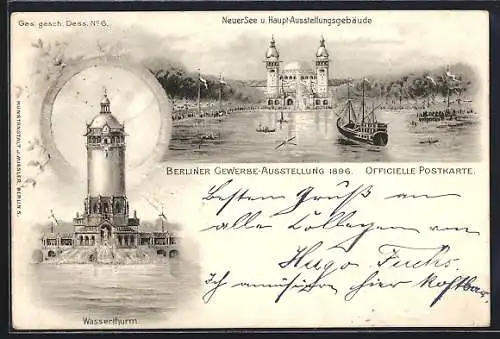 Ges. gesch. Dess. No 6.
Neuer See u. Haupt-Ausstellungsgebäude
KUNSTANSTALT J. MIESLER, BERLIN S.
BERLINER GEWERBE-AUSSTELLUNG 1896. OFFICIELLE POSTKARTE.
Besten Gruß an
alle Collegen von
Hugo Fuchs.
Ich amüsiren hier kostbar,
Wasserthurm.